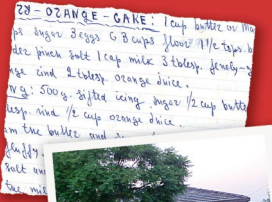 - ORANGE - CAKE : 1 cup butter or
sugar 3 eggs 3 cups flour 1 1/2 tsps. b
pinch salt 1 cup milk 3 tblesp. finely-g
rind 2 tblesp. orange juice.
500g. sifted icing sugar 1/2 cup butte
rind 1/2 cup orange juice.
the butter and
fluffy
salt an
the mi